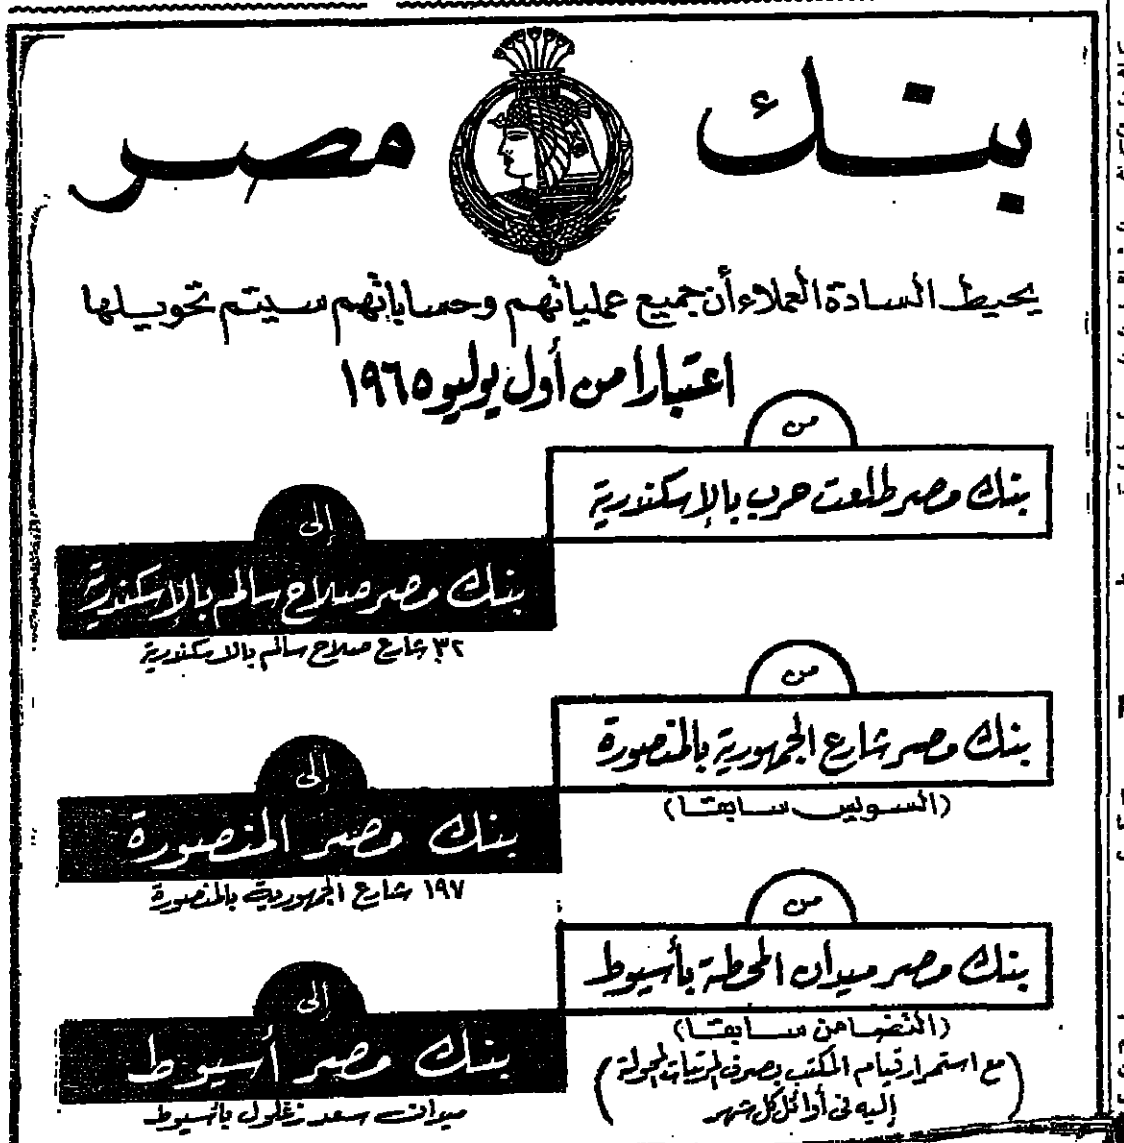 بنك مصر
يحيط السادة العملاء أن جميع عملياتهم وحساباتهم سيتم تحويلها
اعتبارا من أول يوليو ١٩٦٥
من
بنك مصر طلعت حرب بالإسكندرية
إلى
بنك مصر صلاح سالم بالإسكندرية
٣٢ شارع صلاح سالم بالاسكندرية
من
بنك مصر شارع الجمهورية بالمنصورة
(السويس سابقا)
إلى
بنك مصر المنصورة
١٩٧ شارع الجمهورية بالمنصورة
من
بنك مصر ميدان المحطة بأسيوط
(التضامن سابقا)
(مع استمرار قيام المكتب بصرف المرتبات المحولة
إليه في أوائل كل شهر)
إلى
بنك مصر أسيوط
ميدان سعد زغلول بأسيوط